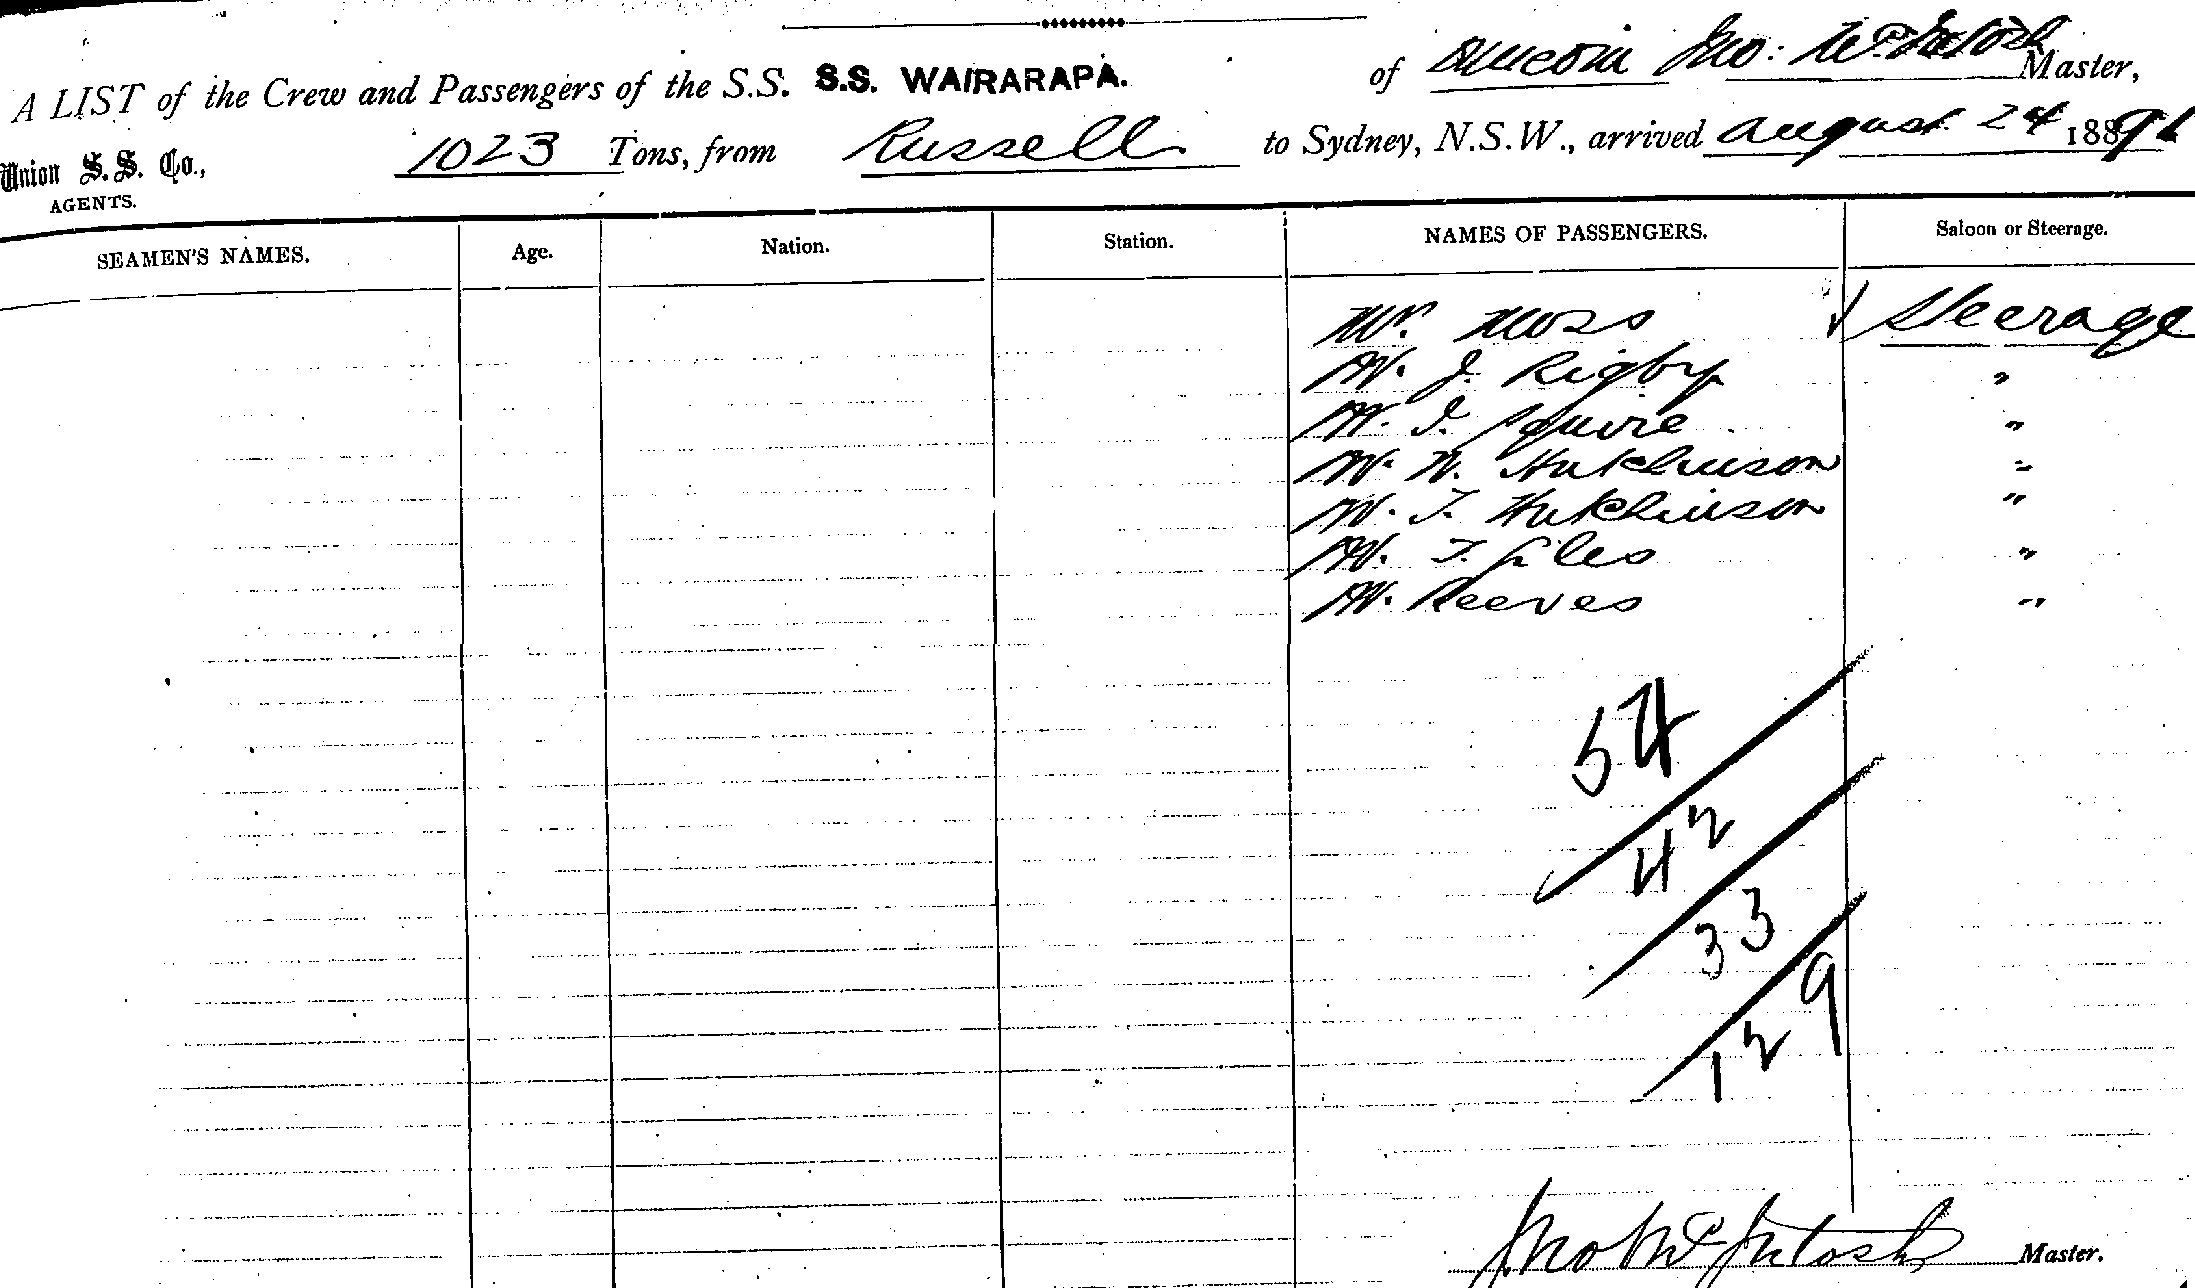 A LIST of the Crew and Passengers of the S.S. S.S. WAIRARAPA. of Dunedin Jno: McIntosh Master,
Union S.S. Co., 1023 Tons, from Russell to Sydney, N.S.W., arrived August 24 18891
AGENTS.
SEAMEN'S NAMES. Age. Nation. Station. NAMES OF PASSENGERS. Saloon or Steerage.
Mr. Moss Steerage
Mr. J. Rigby "
Mr. I. Squire "
Mr. W. Hutchinson "
Mr. T. Hutchinson "
Mr. T. Giles "
Mr. Reeves "
54
42
33
129
Jno McIntosh Master.